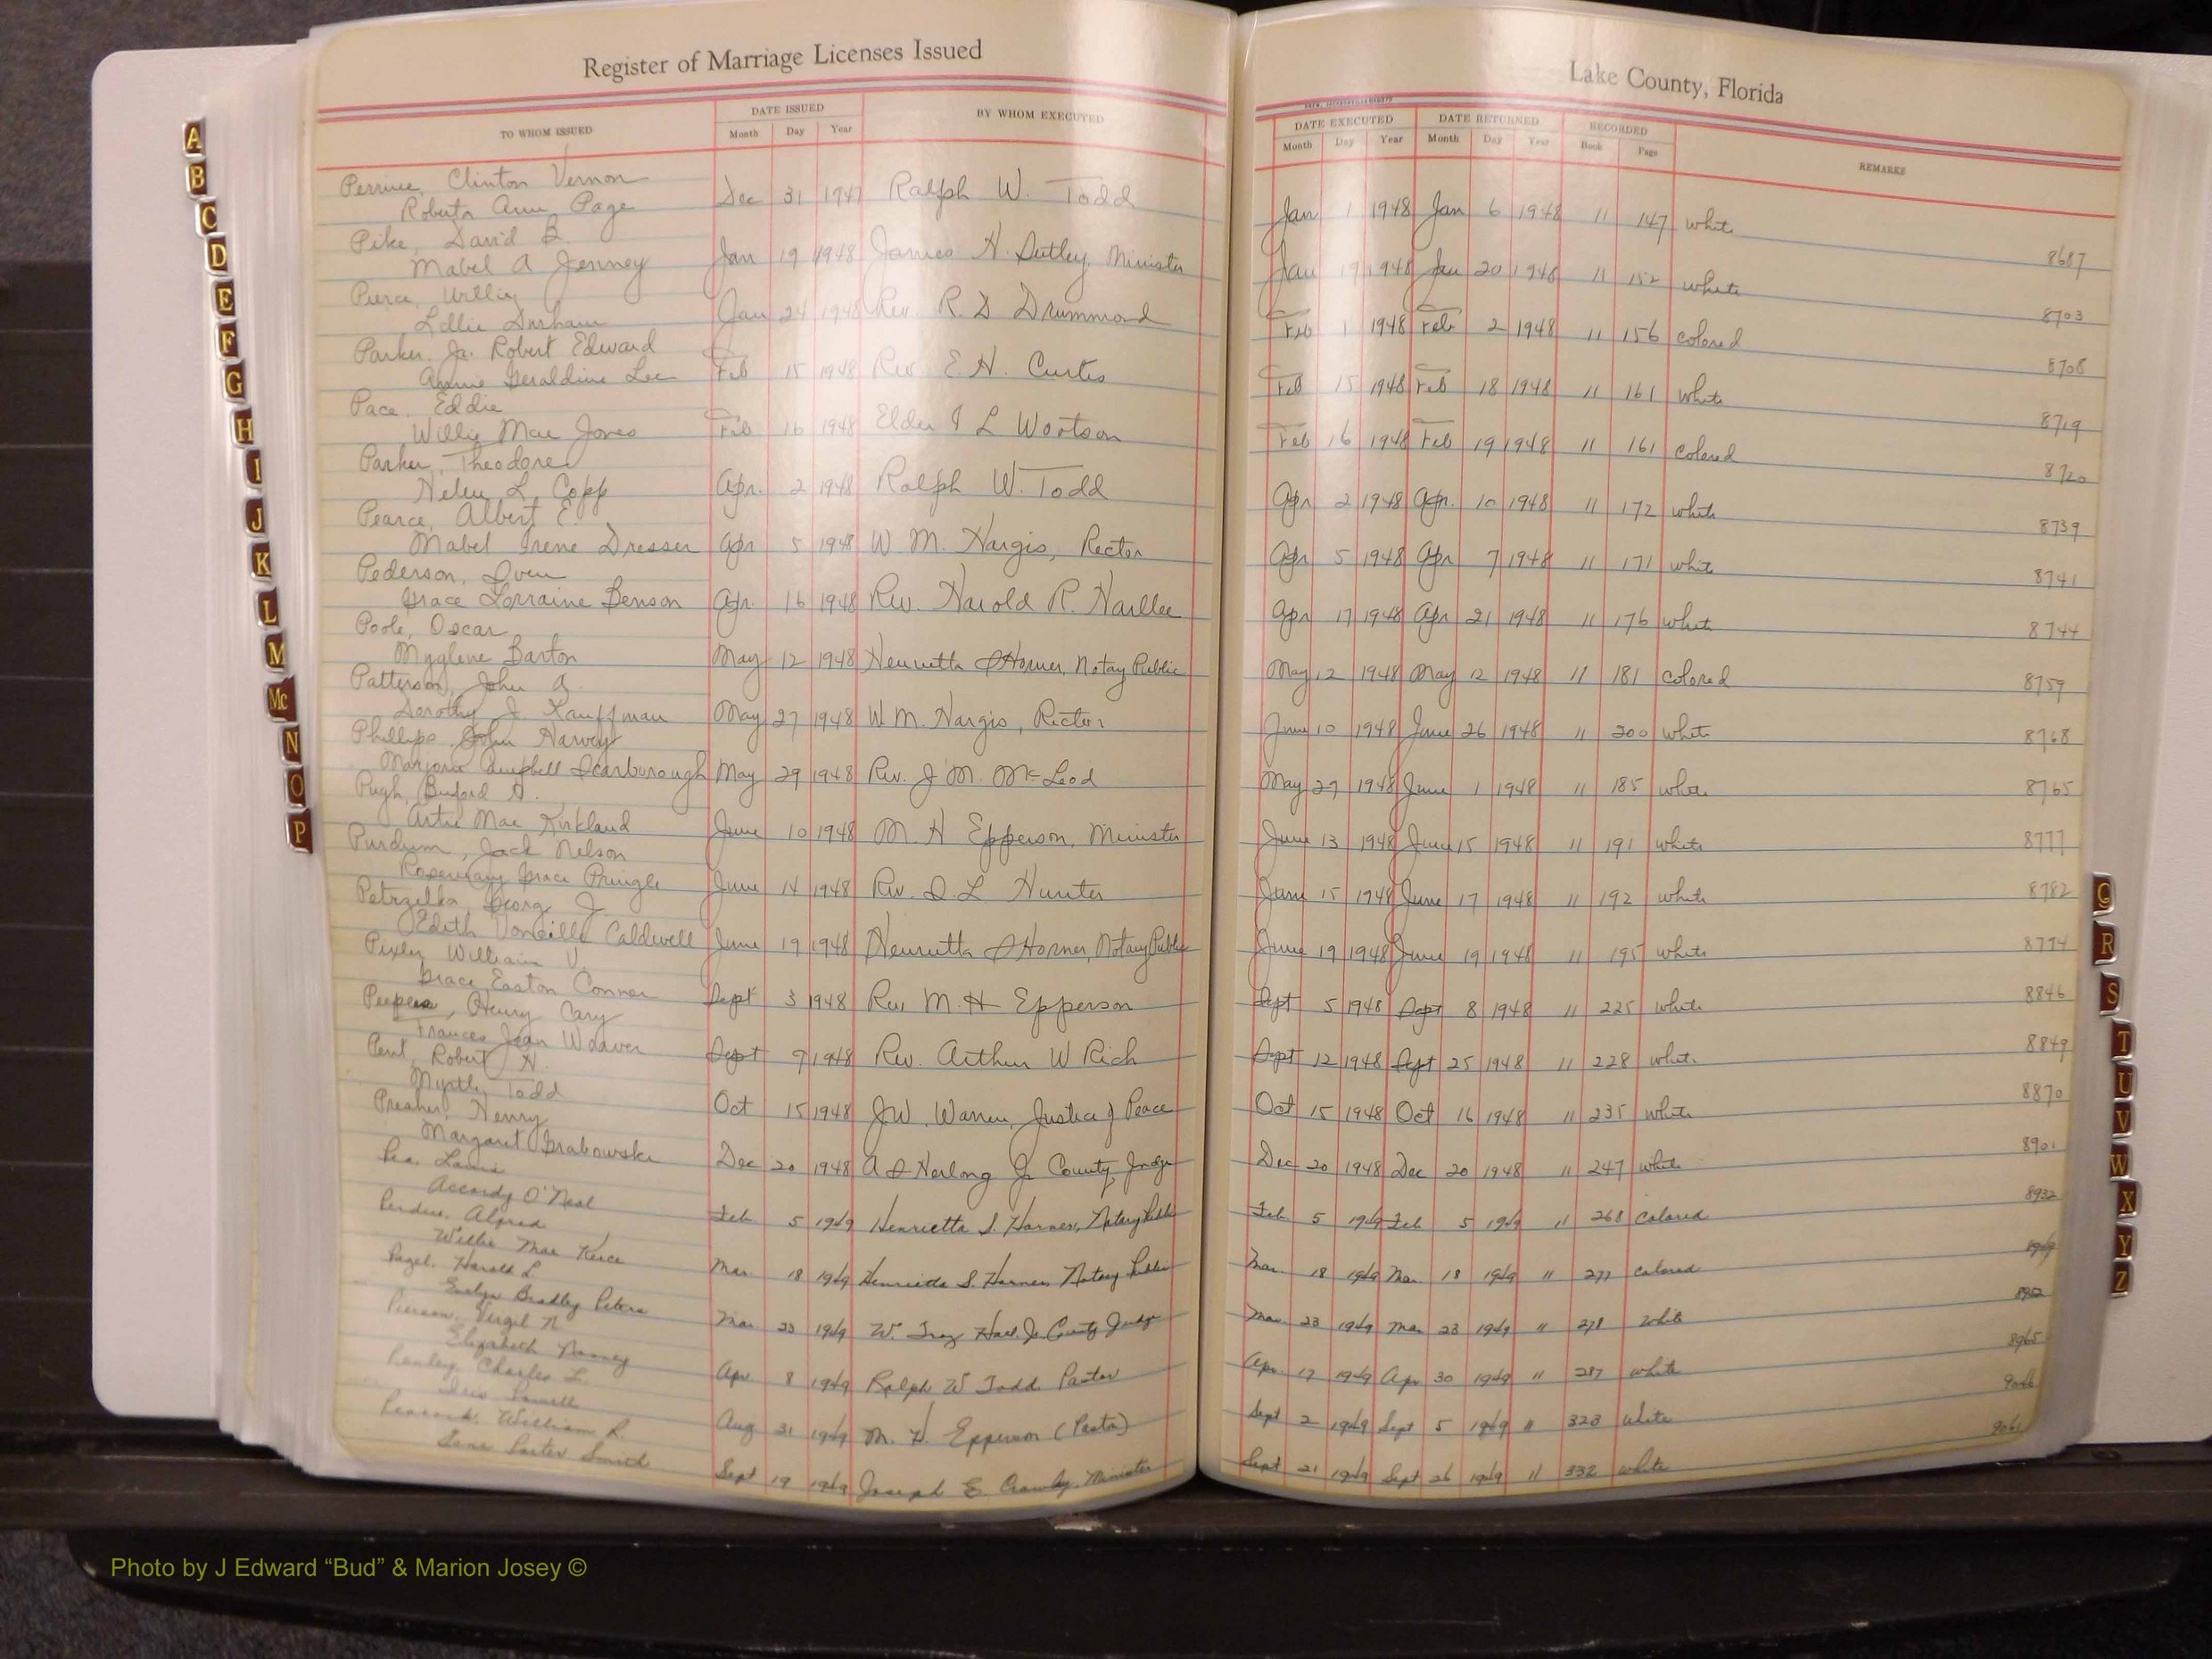 Register of Marriage Licenses Issued
Lake County, Florida
TO WHOM ISSUED
DATE ISSUED
Month Day Year
BY WHOM EXECUTED
DATE EXECUTED
Month Day Year
DATE RETURNED
Month Day Year
RECORDED
Book Page
REMARKS
Perrine, Clinton Vernon
Roberta Ann Page Dec 31 1947 Ralph W. Todd Jan 1 1948 Jan 6 1948 11 147 white 8687
Pike, David B.
Mabel A Jenney Jan 19 1948 James H. Minister Jan 19 1948 Jan 20 1948 11 152 white 8703
Pierce, Willie
Lillie Durham Jan 24 1948 Rev. R. D Drummond Feb 1 1948 Feb 2 1948 11 156 colored 8708
Parker, Jr. Robert Edward
Annie Geraldine Lee Feb 15 1948 Rev. E. H. Curtis Feb 15 1948 Feb 18 1948 11 161 white 8719
Pace, Eddie
Willie Mae Jones Feb 16 1948 Elder I L Wootson Feb 16 1948 Feb 19 1948 11 161 colored 8720
Parker, Theodore
Helen L. Copp Apr. 2 1948 Ralph W. Todd Apr 2 1948 Apr. 10 1948 11 172 white 8739
Pearce, Albert E.
Mabel Irene Dresser Apr 5 1948 W. M. Hargis, Rector Apr 5 1948 Apr 7 1948 11 171 white 8741
Pederson, Oven
Grace Lorraine Benson Apr. 16 1948 Rev. Harold R. Harllee Apr 17 1948 Apr 21 1948 11 176 white 8744
Poole, Oscar
Myglene Barton May 12 1948 Henrietta S Horner, Notary Public May 12 1948 May 12 1948 11 181 colored 8759
Patterson, John A.
Dorothy J. Kauffman May 27 1948 W. M. Hargis, Rector June 10 1948 June 26 1948 11 200 white 8768
Phillips, John Harvey
Marjorie Campbell Scarborough May 29 1948 Rev. J. M. McLeod May 29 1948 June 1 1948 11 185 white 8765
Pugh, Buford A.
Artie Mae Kirkland June 10 1948 M. H Epperson, Minister June 13 1948 June 15 1948 11 191 white 8777
Purdum, Jack Nelson
Rosemary Grace Pringle June 14 1948 Rev. D. L Hunter June 15 1948 June 17 1948 11 192 white 8782
Petrzelka, Georg J.
Edith Voncille Caldwell June 19 1948 Henrietta S Horner, Notary Public June 19 1948 June 19 1948 11 195 white
Pixley William V.
Grace Easton Conner Sept 3 1948 Rev M. H Epperson Sept 5 1948 Sept 8 1948 11 225 white 8846
Peepers, Henry Cary
Frances Jean Weaver Sept 9 1948 Rev. Arthur W Rich Sept 12 1948 Sept 25 1948 11 228 white 8849
Pent, Robert H.
Myrtle Todd Oct 15 1948 J. W. Warren, Justice of Peace Oct 15 1948 Oct 16 1948 11 235 white 8870
Preaher, Henry
Margaret Grabowski Dec 20 1948 A S Herlong Jr County Judge Dec 20 1948 Dec 20 1948 11 247 white 8901
Pea, Louis
Accordy O'Neal Feb 5 1949 Henrietta S. Horner, Notary Public Feb 5 1949 Feb 5 1949 11 268 Colored 8932
Perdue, Alfred
Willie Mae Keice Mar. 18 1949 Henrietta S. Horner Notary Public Mar. 18 1949 Mar. 18 1949 11 277 colored
Pagel, Harold L.
Evelyn Bradley Peters Mar. 23 1949 W. Troy Hall Jr. County Judge Mar. 23 1949 Mar 23 1949 11 278 White 8952
Pierson, Vergil N.
Elizabeth Apr. 8 1949 Ralph W Todd Pastor Apr. 17 1949 Apr 30 1949 11 287 white 8965
Penley, Charles L.
Iris Aug 31 1949 M. H. Epperson (Pastor) Sept 2 1949 Sept 5 1949 11 323 White
Peacock, William R.
Porter Smith Sept 19 1949 Joseph E. Crowley, Minister Sept 21 1949 Sept 26 1949 11 332 white 9061
A
B
C
D
E
F
G
H
I
J
K
L
M
Mc
N
O
P
Q
R
S
T
U
V
W
X
Y
Z
Photo by J Edward “Bud” & Marion Josey ©